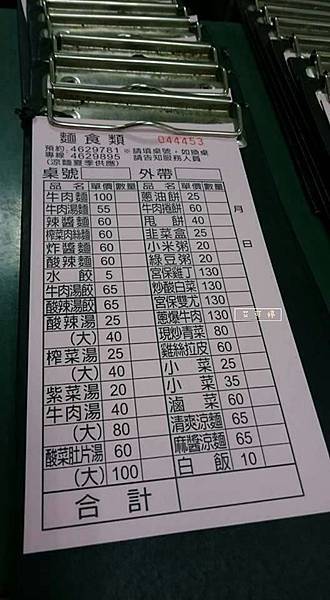 麵食類 044453
預約:4629781 ※請填桌號,如換桌
專線 4629895 請告知服務人員
(涼麵夏季供應)
桌號 外帶
品名 單價 數量 品名 單價 數量
牛肉麵 100 蔥油餅 25
牛肉湯麵 55 牛肉捲餅 60
辣醬麵 60 甩餅 40
榨菜肉絲麵 60 韭菜盒 25
炸醬麵 60 小米粥 20
酸辣麵 60 綠豆粥 20
水餃 5 宮保雞丁 130
牛肉湯餃 65 炒酸白菜 130
酸辣湯餃 65 宮保雙尤 130
酸辣湯 25 蔥爆牛肉 130
(大) 40 現炒青菜 80
榨菜湯 25 雞絲拉皮 60
(大) 40 小菜 25
紫菜湯 20 小菜 35
牛肉湯 40 滷菜 60
(大) 80 清爽涼麵 65
酸菜肚片湯 60 麻醬涼麵 65
(大) 100 白飯 10
合計
月
日